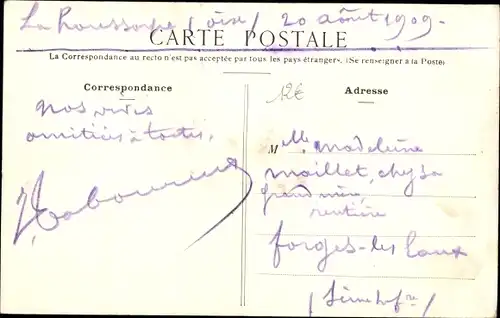 La Houssoye (oise) 20 août 1909.
CARTE POSTALE
La Correspondance au recto n'est pas acceptée par tous les pays étrangers. (Se renseigner à la Poste)
Correspondance
Adresse
nos vives
amitiés à toutes.
12€
Melle Madeleine
Maillet, chez sa
grand mère
rentière
forges-les Eaux
(Seine Infre)